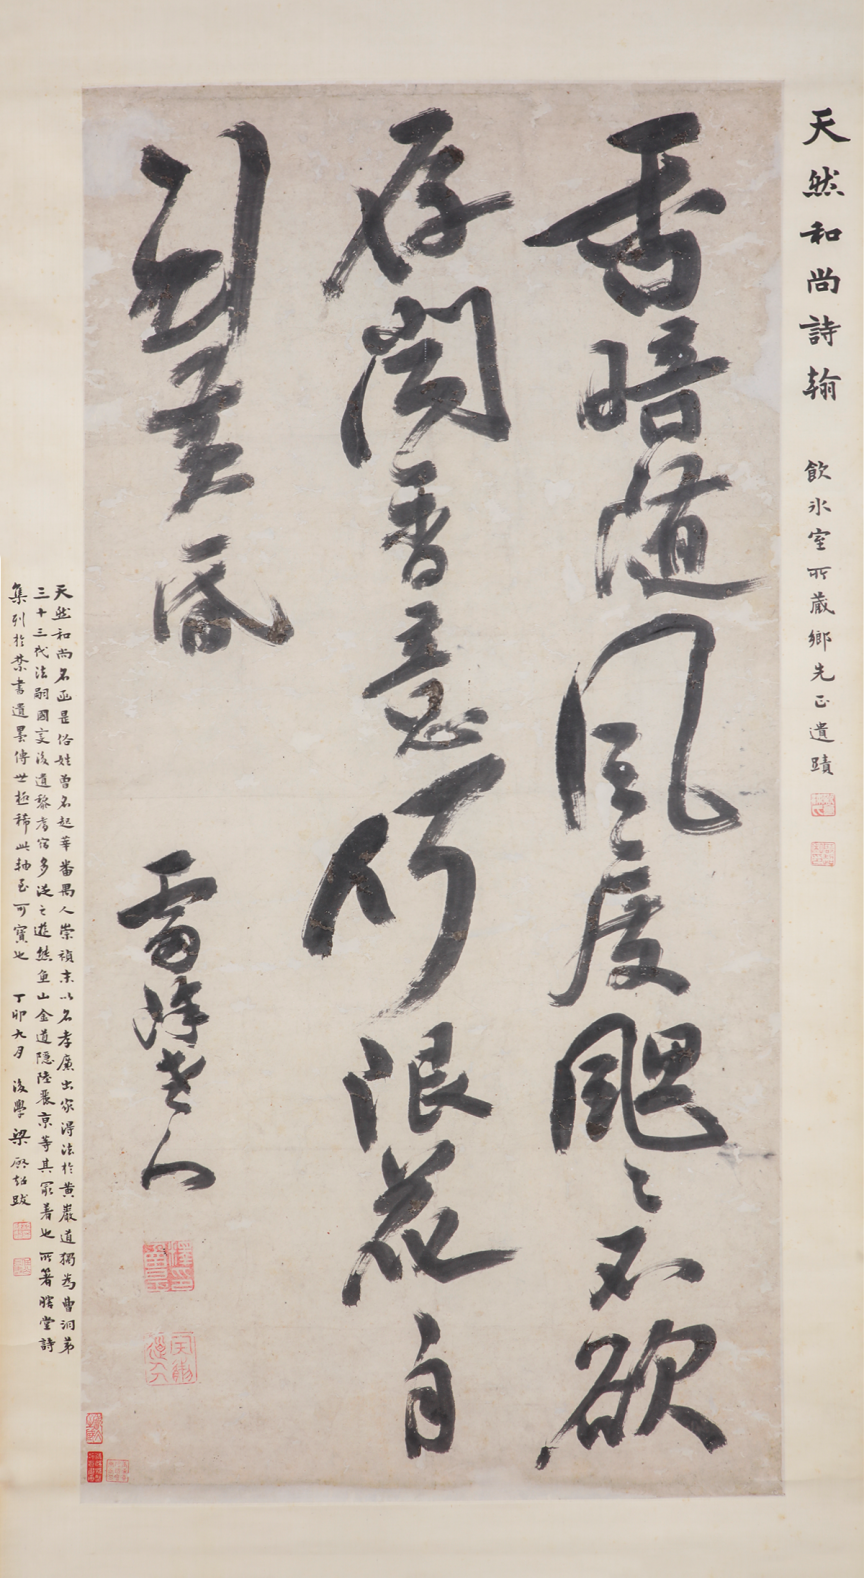 天然和尚詩翰 飲冰室所藏鄉先正遺蹟
香暗隨風度颸〻不欲
存閣香意何限花自
到黃昏
雷峰老人
天然和尚名函昰俗姓曾名起莘番禺人崇禎末以名孝廉出家得法於黃巖道獨為曹洞弟
三十三代法嗣國變後遺黎耆宿多從之遊熊魚山金道隱陸麗京等其最著也所著瞎堂詩
集列於禁書遺墨傳世極稀此軸至可寶也 丁卯九月 後學梁啟超跋